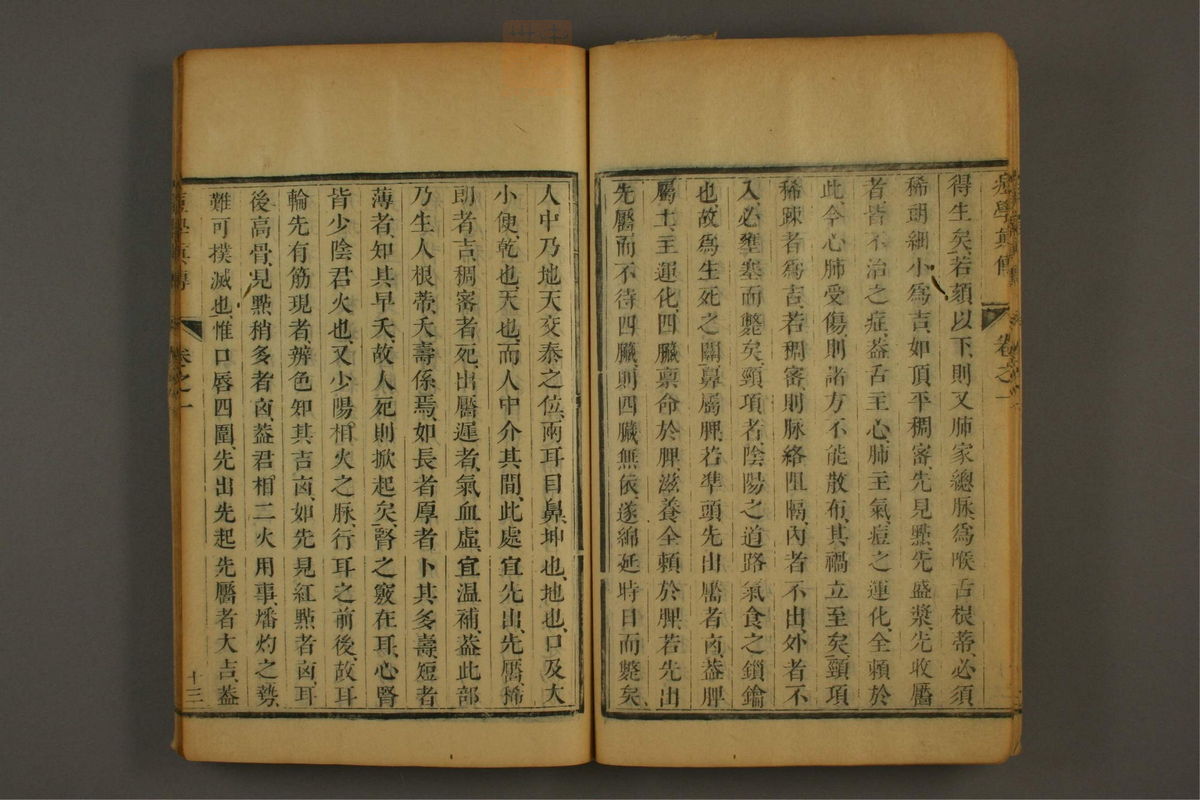 痘學真傳 卷之一
得生矣、若頦以下、則又肺家總脉、爲喉舌根蒂、必須
稀朗細小爲吉、如頂平稠審、先見㸃、先盛漿、先收靨
者、皆不治之症、葢舌主心、肺主氣、痘之運化、全賴於
此、今心肺受傷、則諸方不能散布、其禍立至矣、頸項
稀踈者爲吉、若稠審、則脉絡阻隔、內者不出、外者不
入、必壅塞而斃矣、頸項者、陰陽之道路、氣食之鎖鑰
也、故爲生死之關、鼻屬脾、若準頭先出靨者凶、葢脾
屬土、主運化、四臟禀命於脾、滋養全賴於脾、若先出
先靨、而不待四臟、則四臟無依、遂綿延時日而斃矣、
人中乃地天交泰之位、兩耳目鼻、坤也、地也、口及大
小便、乾也、天也、而人中介其間、此處宜先出、先靨、稀
朗者吉、稠審者死、出靨遲者、氣血虛、宜温補、葢此部
乃生人根蒂、夭壽係焉、如長者厚者、卜其多壽、短者
薄者、知其早夭、故人死則掀起矣、腎之竅在耳、心腎
皆少陰君火也、又少陽相火之脉、行耳之前後、故耳
輪先有筋現者、辨色知其吉凶、如先見紅㸃者凶、耳
後高骨、見㸃稍多者凶、葢君相二火用事、燔灼之勢、
難可撲滅也、惟口唇四圍、先出先起先靨者大吉、葢
痘學真傳 卷之一 十三